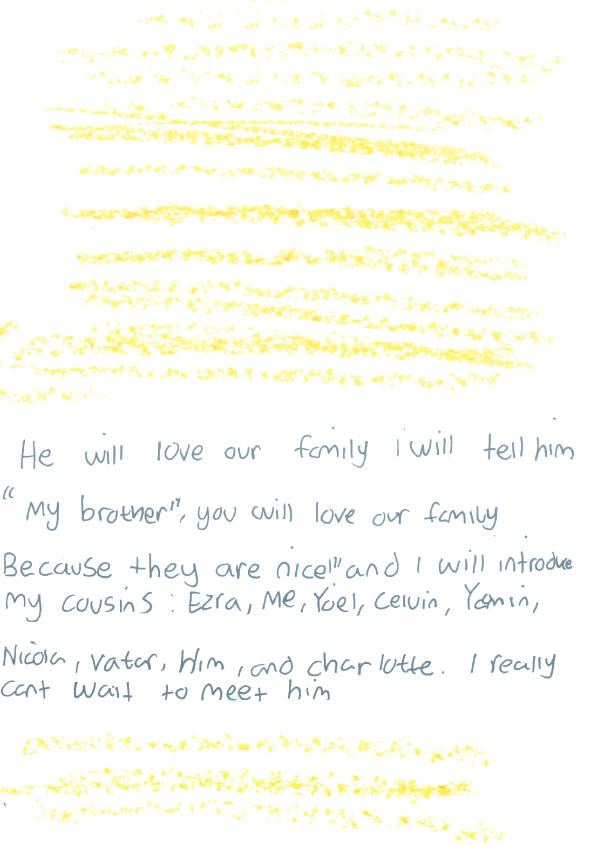 He will love our family i will tell him
"My brother", you will love our family
Because they are nice!" and I will introduce
my cousins : Ezra, Me, Yoel, Celvin, Yamin,
Nicola, vatar, Him, and charlotte. I really
cant wait to meet him